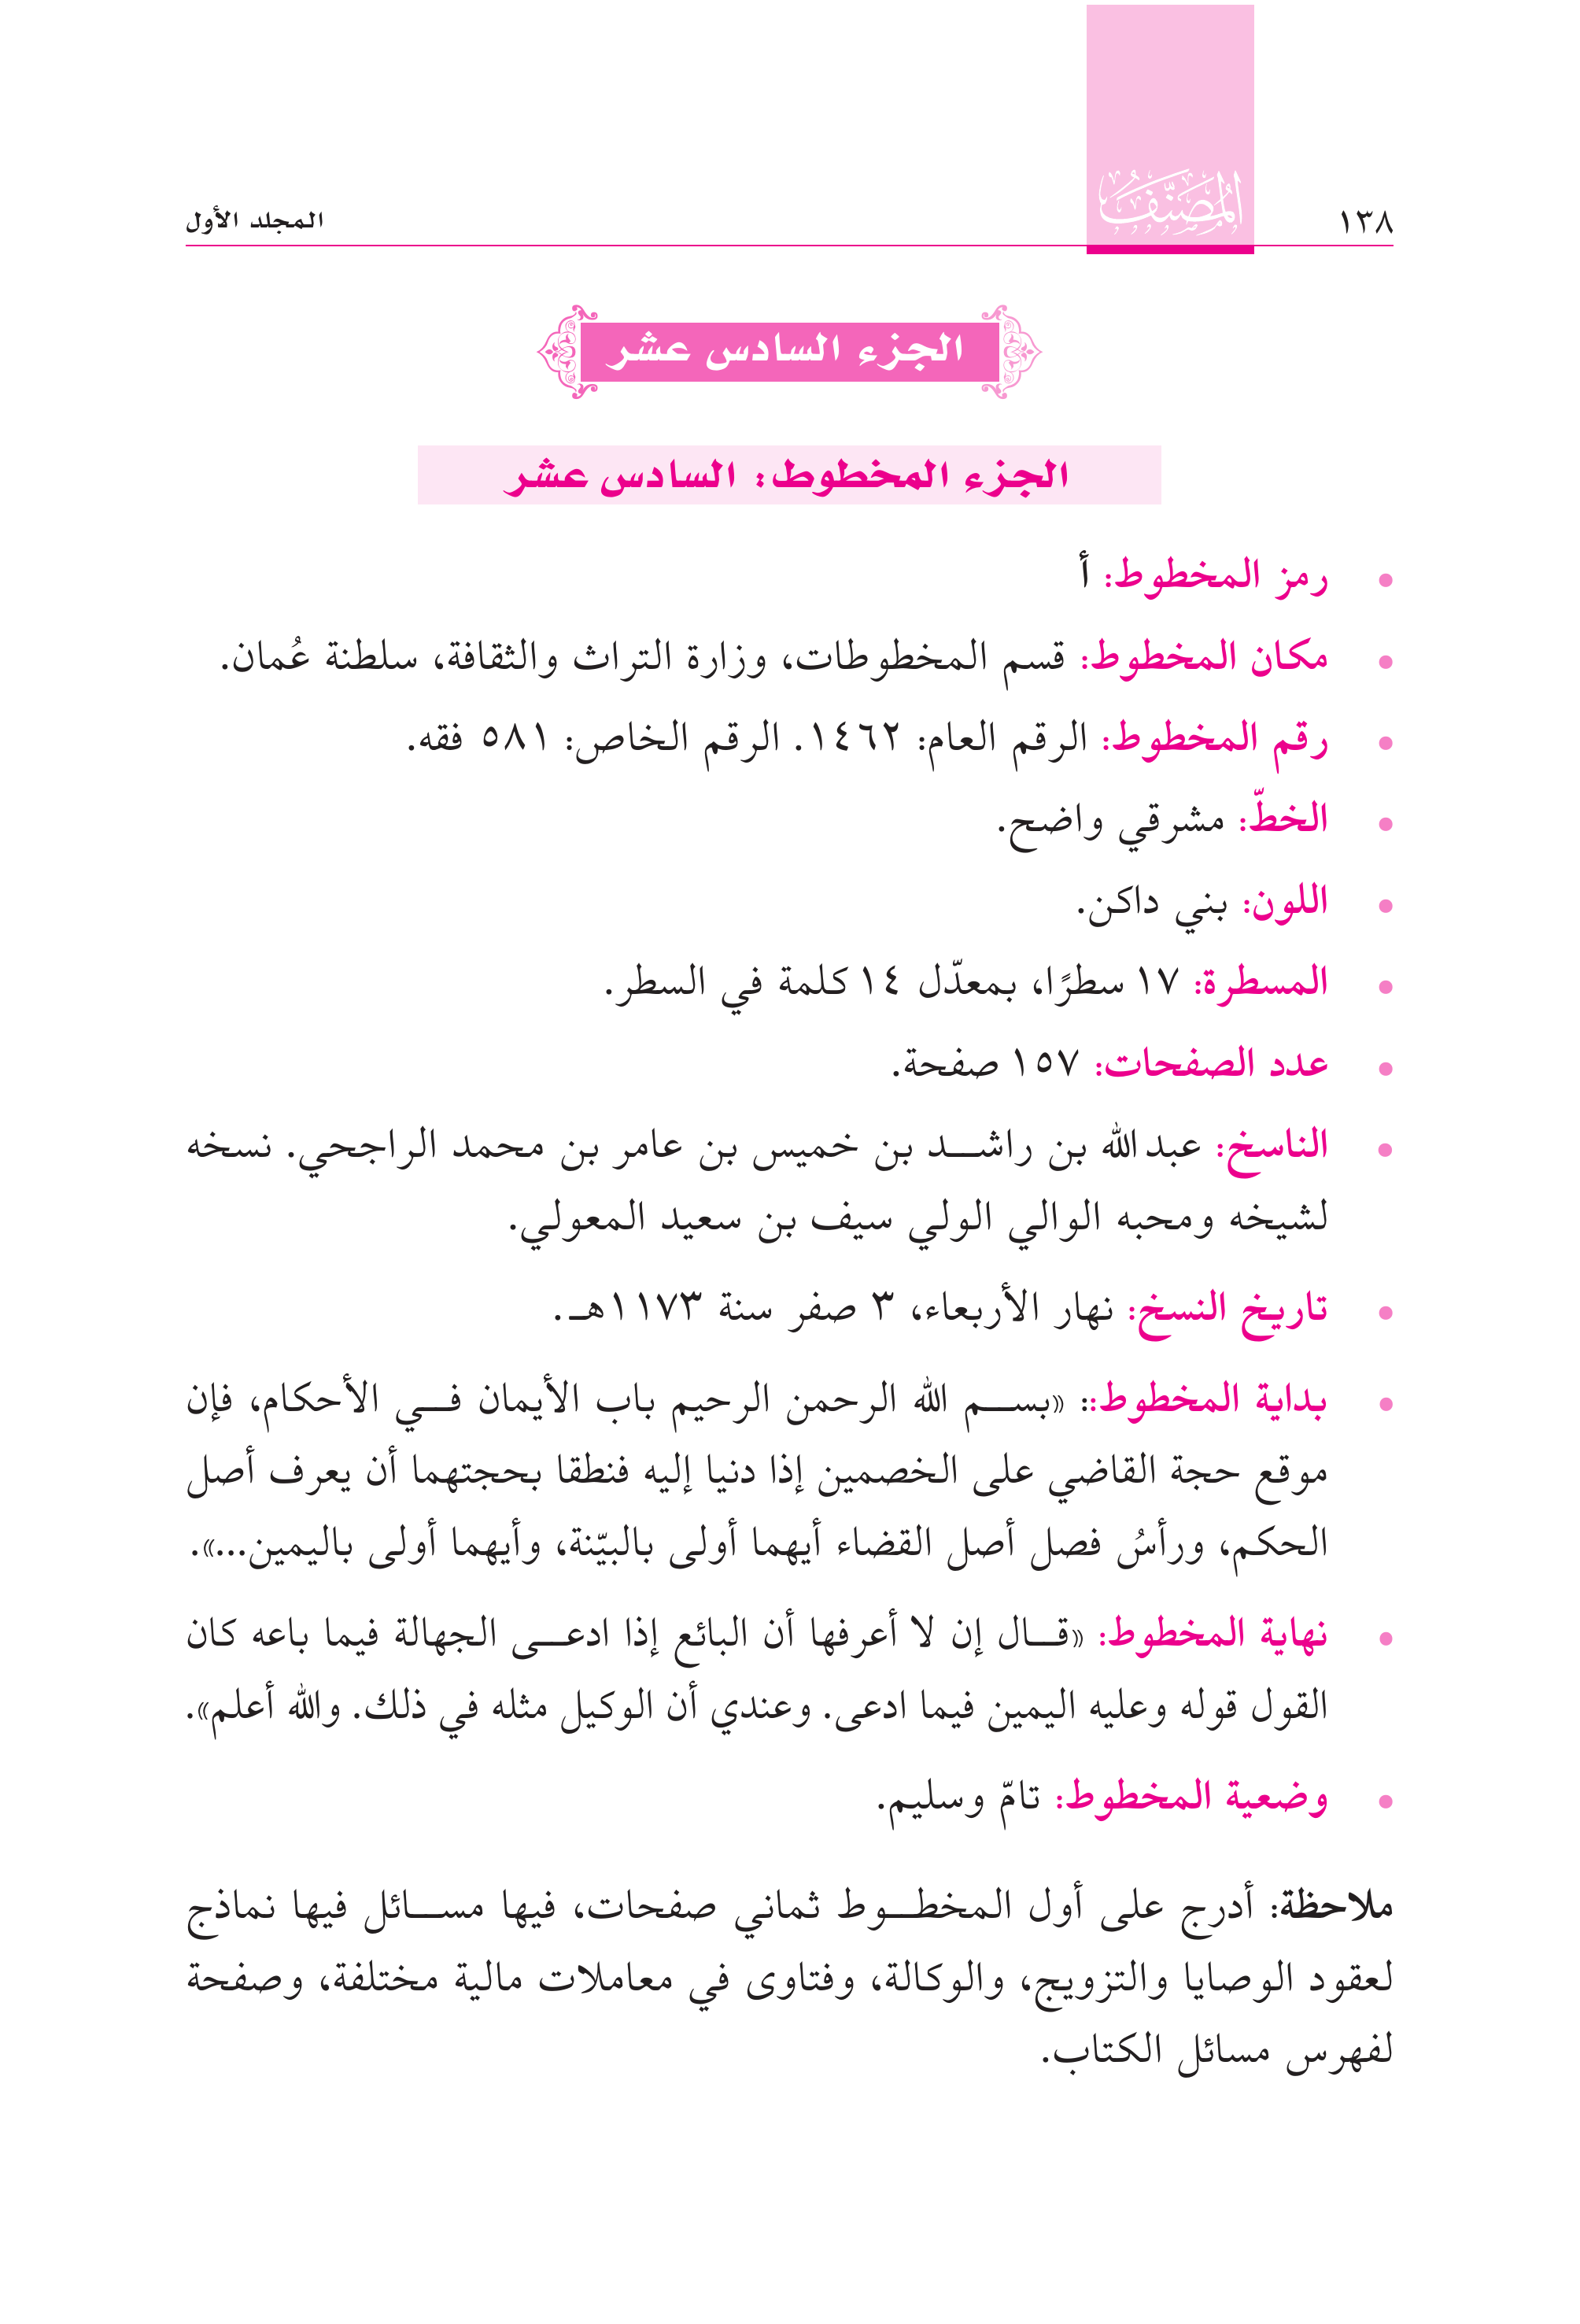 ١٣٨
المصنَّف
المجلد الأول
الجزء السادس عشر
الجزء المخطوط: السادس عشر
• رمز المخطوط: أ
• مكان المخطوط: قسم المخطوطات، وزارة التراث والثقافة، سلطنة عُمان.
• رقم المخطوط: الرقم العام: ١٤٦٢. الرقم الخاص: ٥٨١ فقه.
• الخطّ: مشرقي واضح.
• اللون: بني داكن.
• المسطرة: ١٧ سطرًا، بمعدّل ١٤ كلمة في السطر.
• عدد الصفحات: ١٥٧ صفحة.
• الناسخ: عبد الله بن راشد بن خميس بن عامر بن محمد الراجحي. نسخه
لشيخه ومحبه الوالي الولي سيف بن سعيد المعولي.
• تاريخ النسخ: نهار الأربعاء، ٣ صفر سنة ١١٧٣هـ.
• بداية المخطوط:: «بسم الله الرحمن الرحيم باب الأيمان في الأحكام، فإن
موقع حجة القاضي على الخصمين إذا دنيا إليه فنطقا بحجتهما أن يعرف أصل
الحكم، ورأسُ فصل أصل القضاء أيهما أولى بالبيّنة، وأيهما أولى باليمين...».
• نهاية المخطوط: «قال إن لا أعرفها أن البائع إذا ادعى الجهالة فيما باعه كان
القول قوله وعليه اليمين فيما ادعى. وعندي أن الوكيل مثله في ذلك. والله أعلم».
• وضعية المخطوط: تامّ وسليم.
ملاحظة: أدرج على أول المخطوط ثماني صفحات، فيها مسائل فيها نماذج
لعقود الوصايا والتزويج، والوكالة، وفتاوى في معاملات مالية مختلفة، وصفحة
لفهرس مسائل الكتاب.